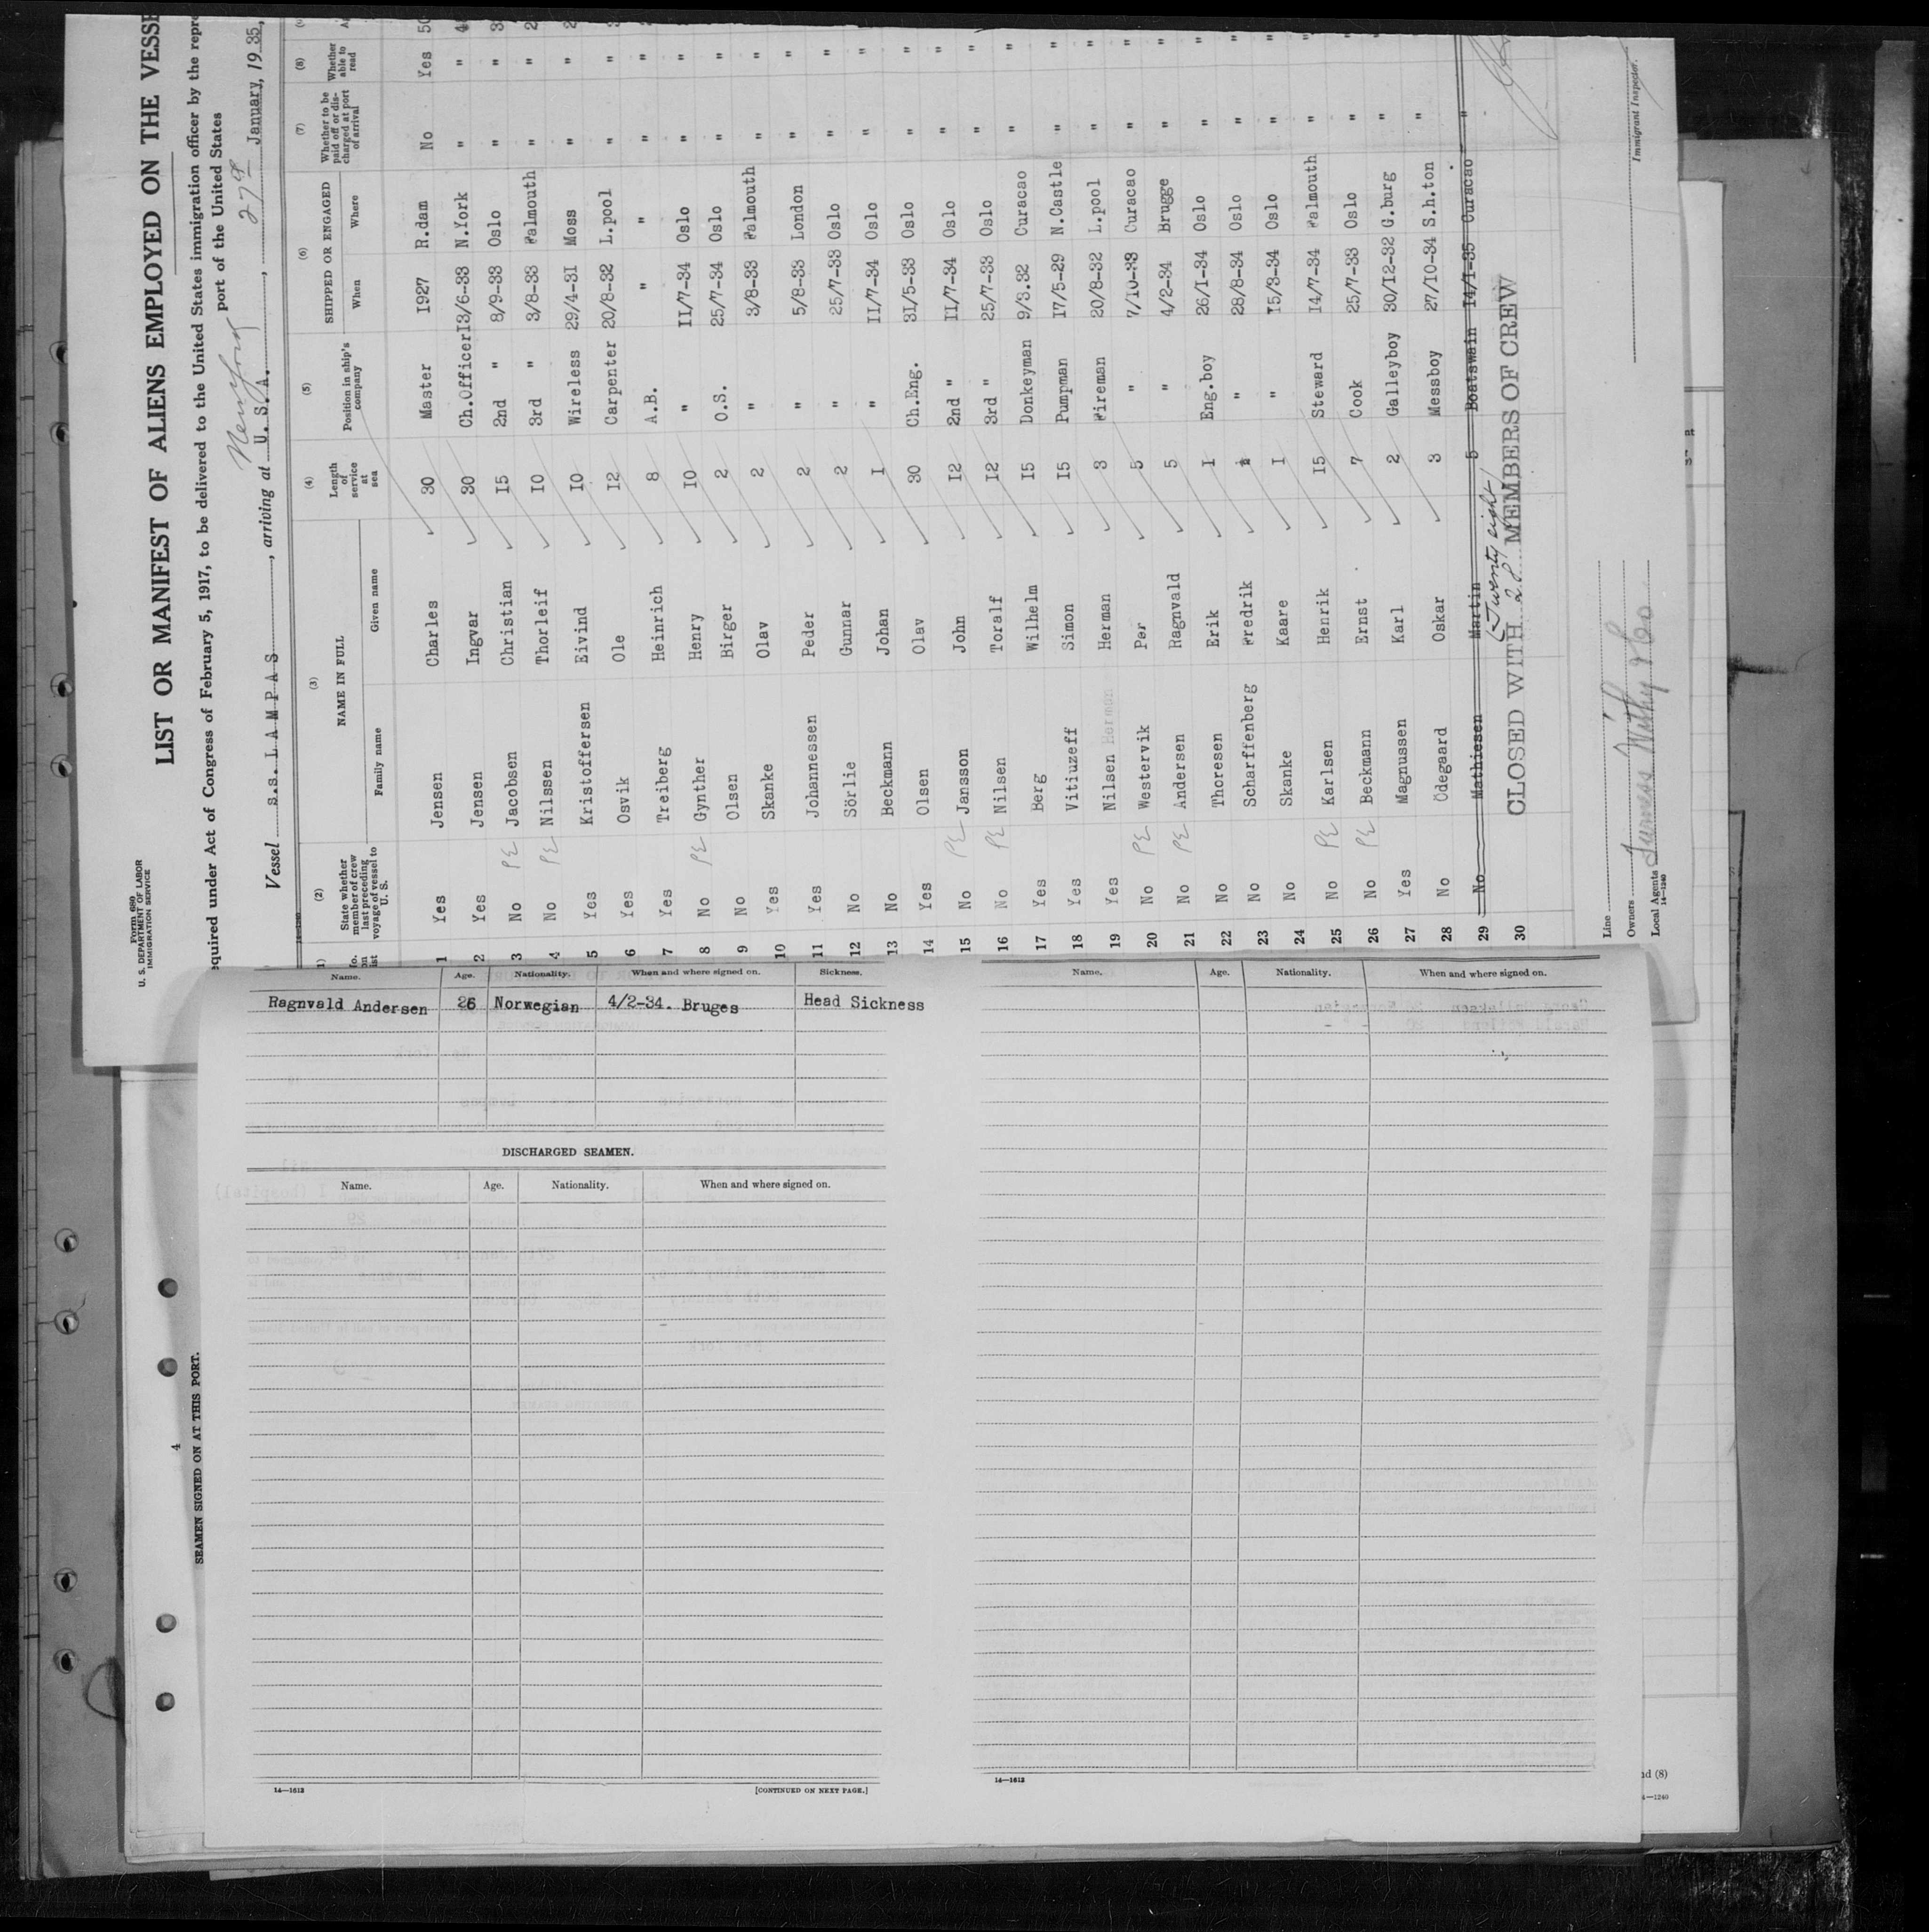 Form 680
U. S. DEPARTMENT OF LABOR
IMMIGRATION SERVICE
LIST OR MANIFEST OF ALIENS EMPLOYED ON THE VESSE
equired under Act of Congress of February 5, 1917, to be delivered to the United States immigration officer by the repre
port of the United States
Vessel s.s. L A M P A S, arriving at New York U. S. A., 27th January, 1935,
(2) (3) (4) (5) (6) (7) (8)
State whether member of crew on last preceding voyage of vessel to U. S.
NAME IN FULL
Family name Given name
Length of service at sea
Position in ship's company
SHIPPED OR ENGAGED
When Where
Whether to be paid off or discharged at port of arrival
Whether able to read
1 Yes Jensen Charles 30 Master 1927 R.dam No Yes 50
2 Yes Jensen Ingvar 30 Ch.Officer 13/6-33 N.York " "
3 No PE Jacobsen Christian 15 2nd " 8/9-33 Oslo " "
4 No PE Nilssen Thorleif 10 3rd " 3/8-33 Falmouth " "
5 Yes Kristoffersen Eivind 10 Wireless 29/4-31 Moss " "
6 Yes Osvik Ole 12 Carpenter 20/8-32 L.pool " "
7 Yes Treiberg Heinrich 8 A.B. " " " "
8 No PE Gynther Henry 10 " 11/7-34 Oslo " "
9 No Olsen Birger 2 O.S. 25/7-34 Oslo " "
10 Yes Skanke Olav 2 " 3/8-33 Falmouth " "
11 Yes Johannessen Peder 2 " 5/8-33 London " "
12 No Sörlie Gunnar 2 " 25/7-33 Oslo " "
13 No Beckmann Johan 1 " 11/7-34 Oslo " "
14 Yes Olsen Olav 30 Ch.Eng. 31/5-33 Oslo " "
15 No PE Jansson John 12 2nd " 11/7-34 Oslo " "
16 No PE Nilsen Toralf 12 3rd " 25/7-33 Oslo " "
17 Yes Berg Wilhelm 15 Donkeyman 9/3.32 Curacao " "
18 Yes Vitiuzeff Simon 15 Pumpman 17/5-29 N.Castle " "
19 Yes Nilsen Herman 3 Fireman 20/8-32 L.pool " "
20 No PE Westervik Per 5 " 7/10-33 Curacao " "
21 No PE Andersen Ragnvald 5 " 4/2-34 Brugge " "
22 No Thoresen Erik 1 Eng.boy 26/1-34 Oslo " "
23 No Scharffenberg Fredrik " 28/8-34 Oslo " "
24 No Skanke Kaare 1 " 15/3-34 Oslo " "
25 No PE Karlsen Henrik 15 Steward 14/7-34 Falmouth " "
26 No PE Beckmann Ernst 7 Cook 25/7-33 Oslo " "
27 Yes Magnussen Karl 2 Galleyboy 30/12-32 G.burg " "
28 No Odegaard Oskar 3 Messboy 27/10-34 S.h.ton " "
29 No Mathiesen Martin 5 Boatswain 14/1-35 Curacao " "
30
(Twenty eight)
CLOSED WITH 28 MEMBERS OF CREW
Line
Owners
Local Agents Furness Withy & Co
14-1240
Immigrant Inspector.
Name. Age. Nationality. When and where signed on. Sickness.
Ragnvald Andersen 26 Norwegian 4/2-34. Bruges Head Sickness
DISCHARGED SEAMEN.
Name. Age. Nationality. When and where signed on.
14—1613 [CONTINUED ON NEXT PAGE.]
4
SEAMEN SIGNED ON AT THIS PORT.
Name. Age. Nationality. When and where signed on.
14—1613
nd (8)
4—1240